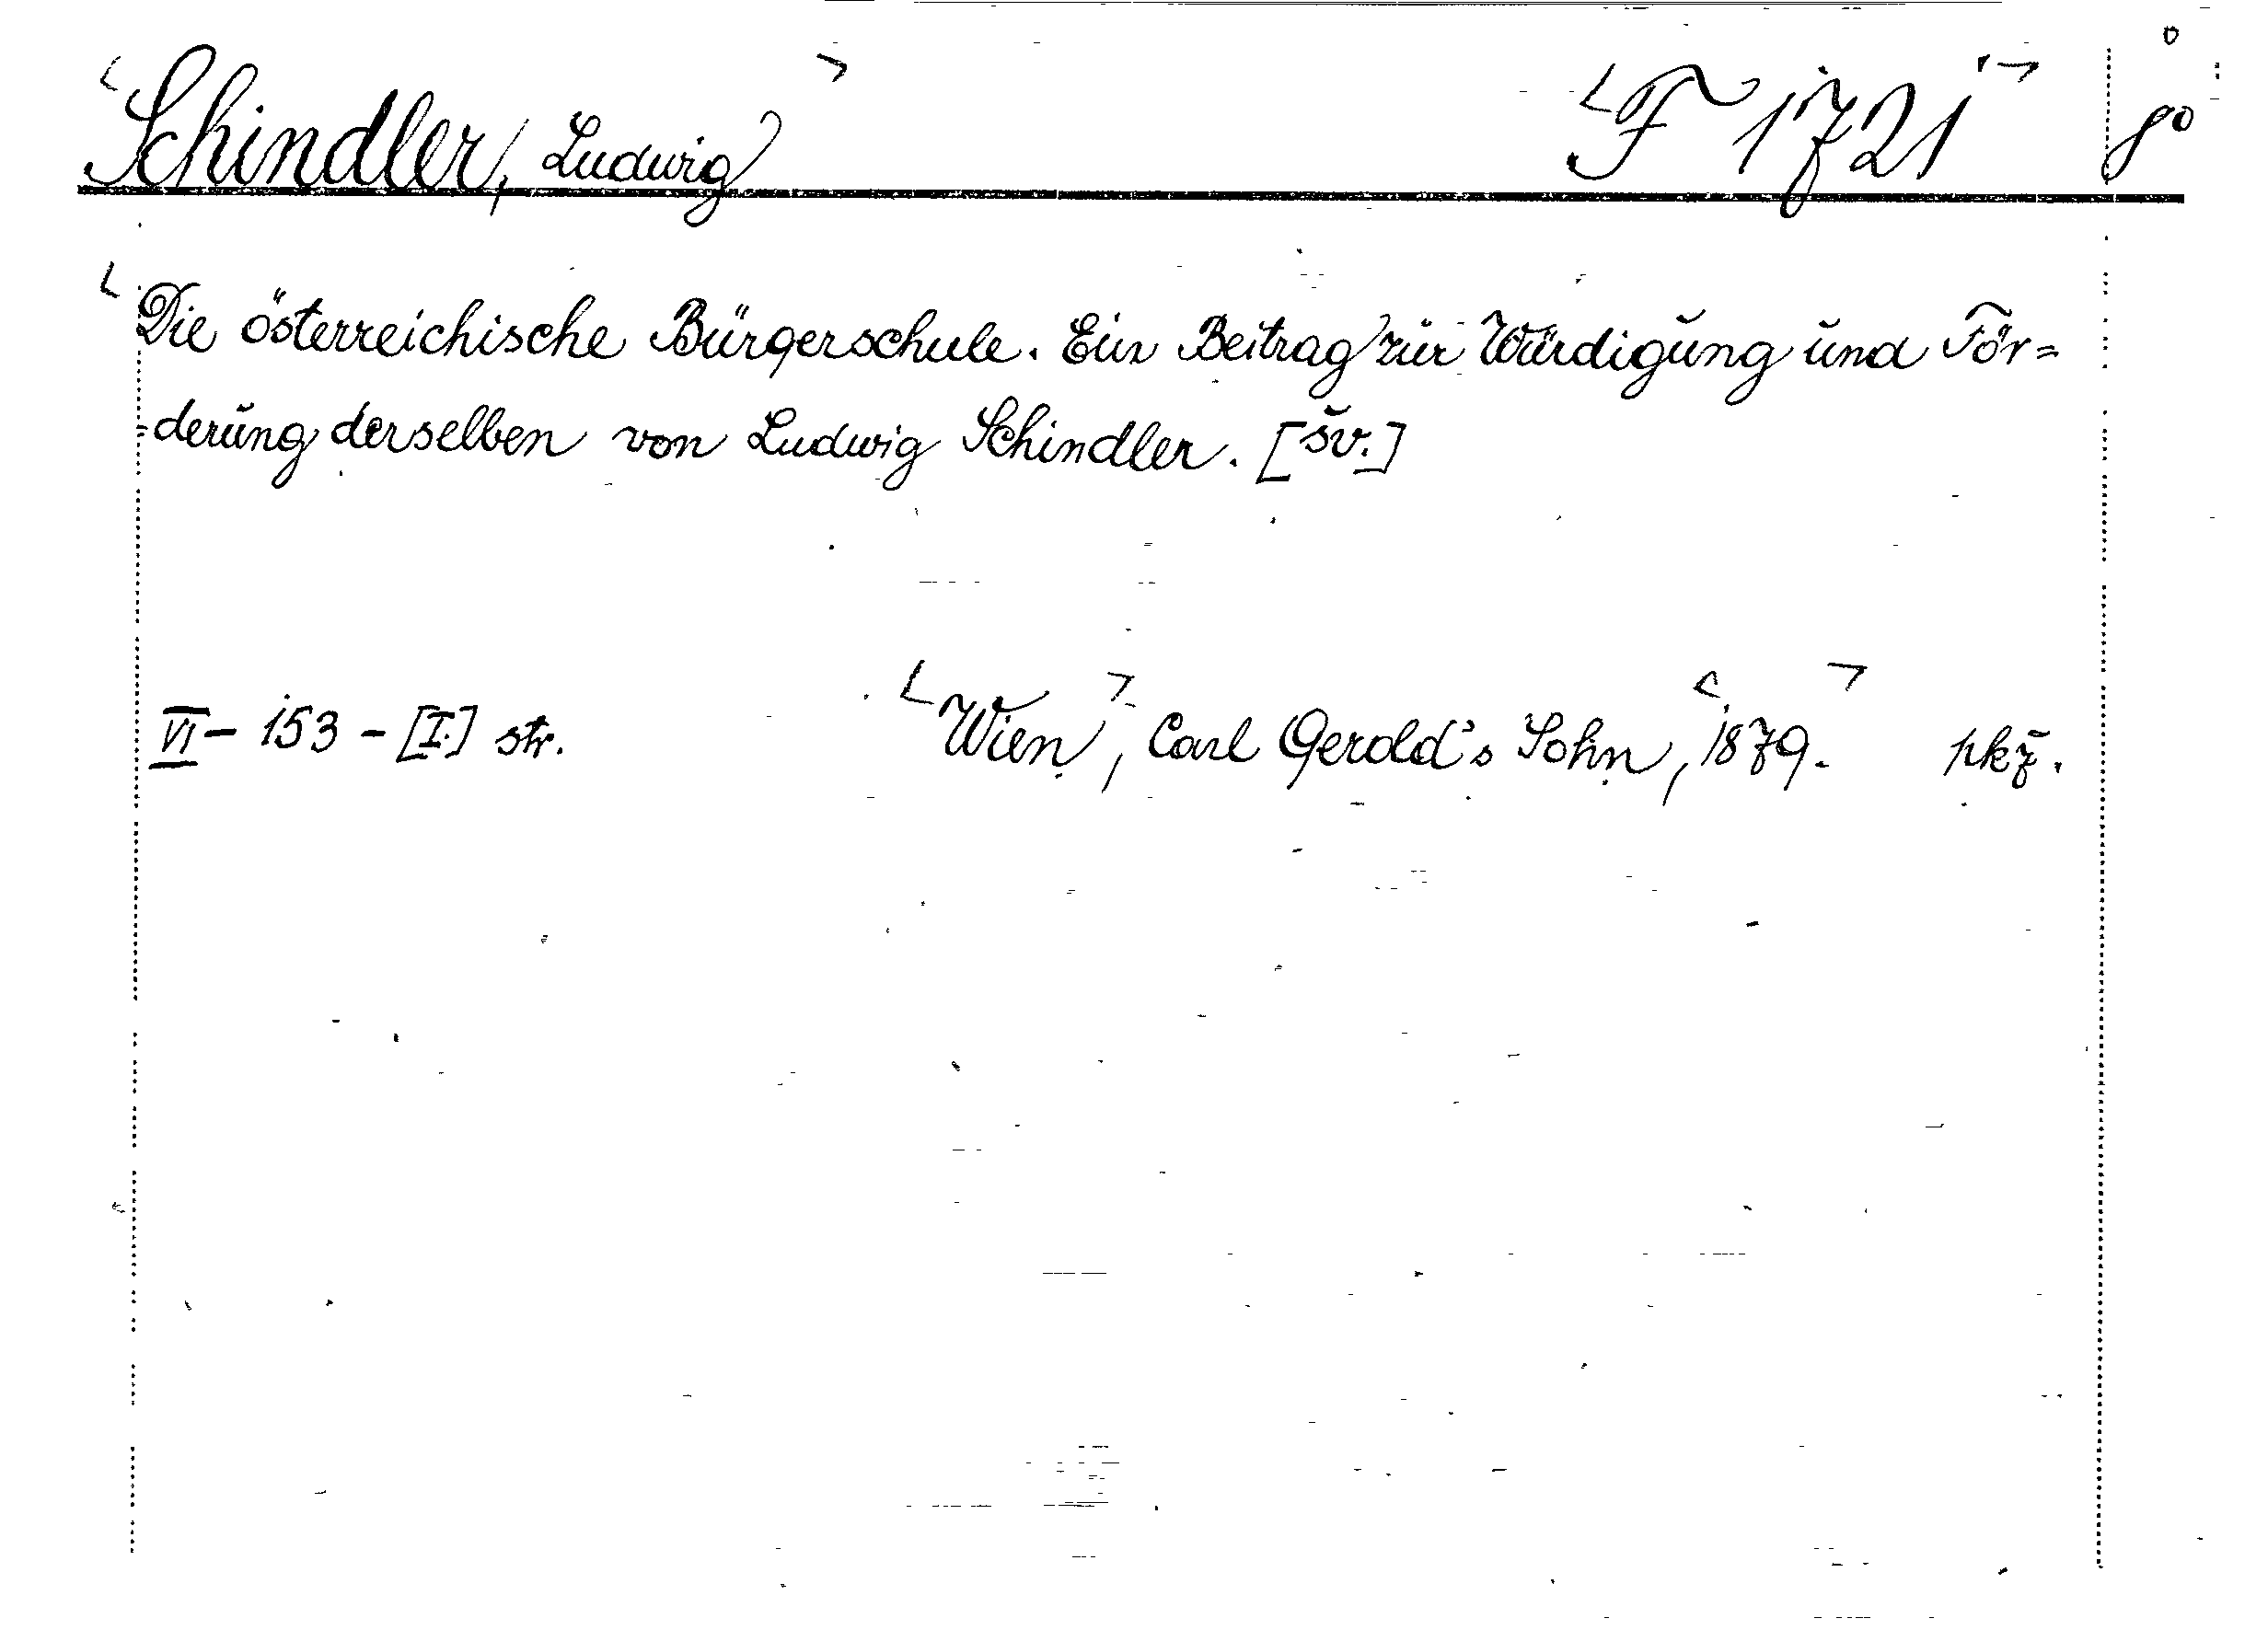 Schindler, Ludwig F 1721 8°
Die österreichische Bürgerschule. Ein Beitrag zur Würdigung und För=
=derung derselben von Ludwig Schindler. [šv.]
VI - 153 - [I.] str. Wien, Carl Gerold's Sohn, 1879. pkž.